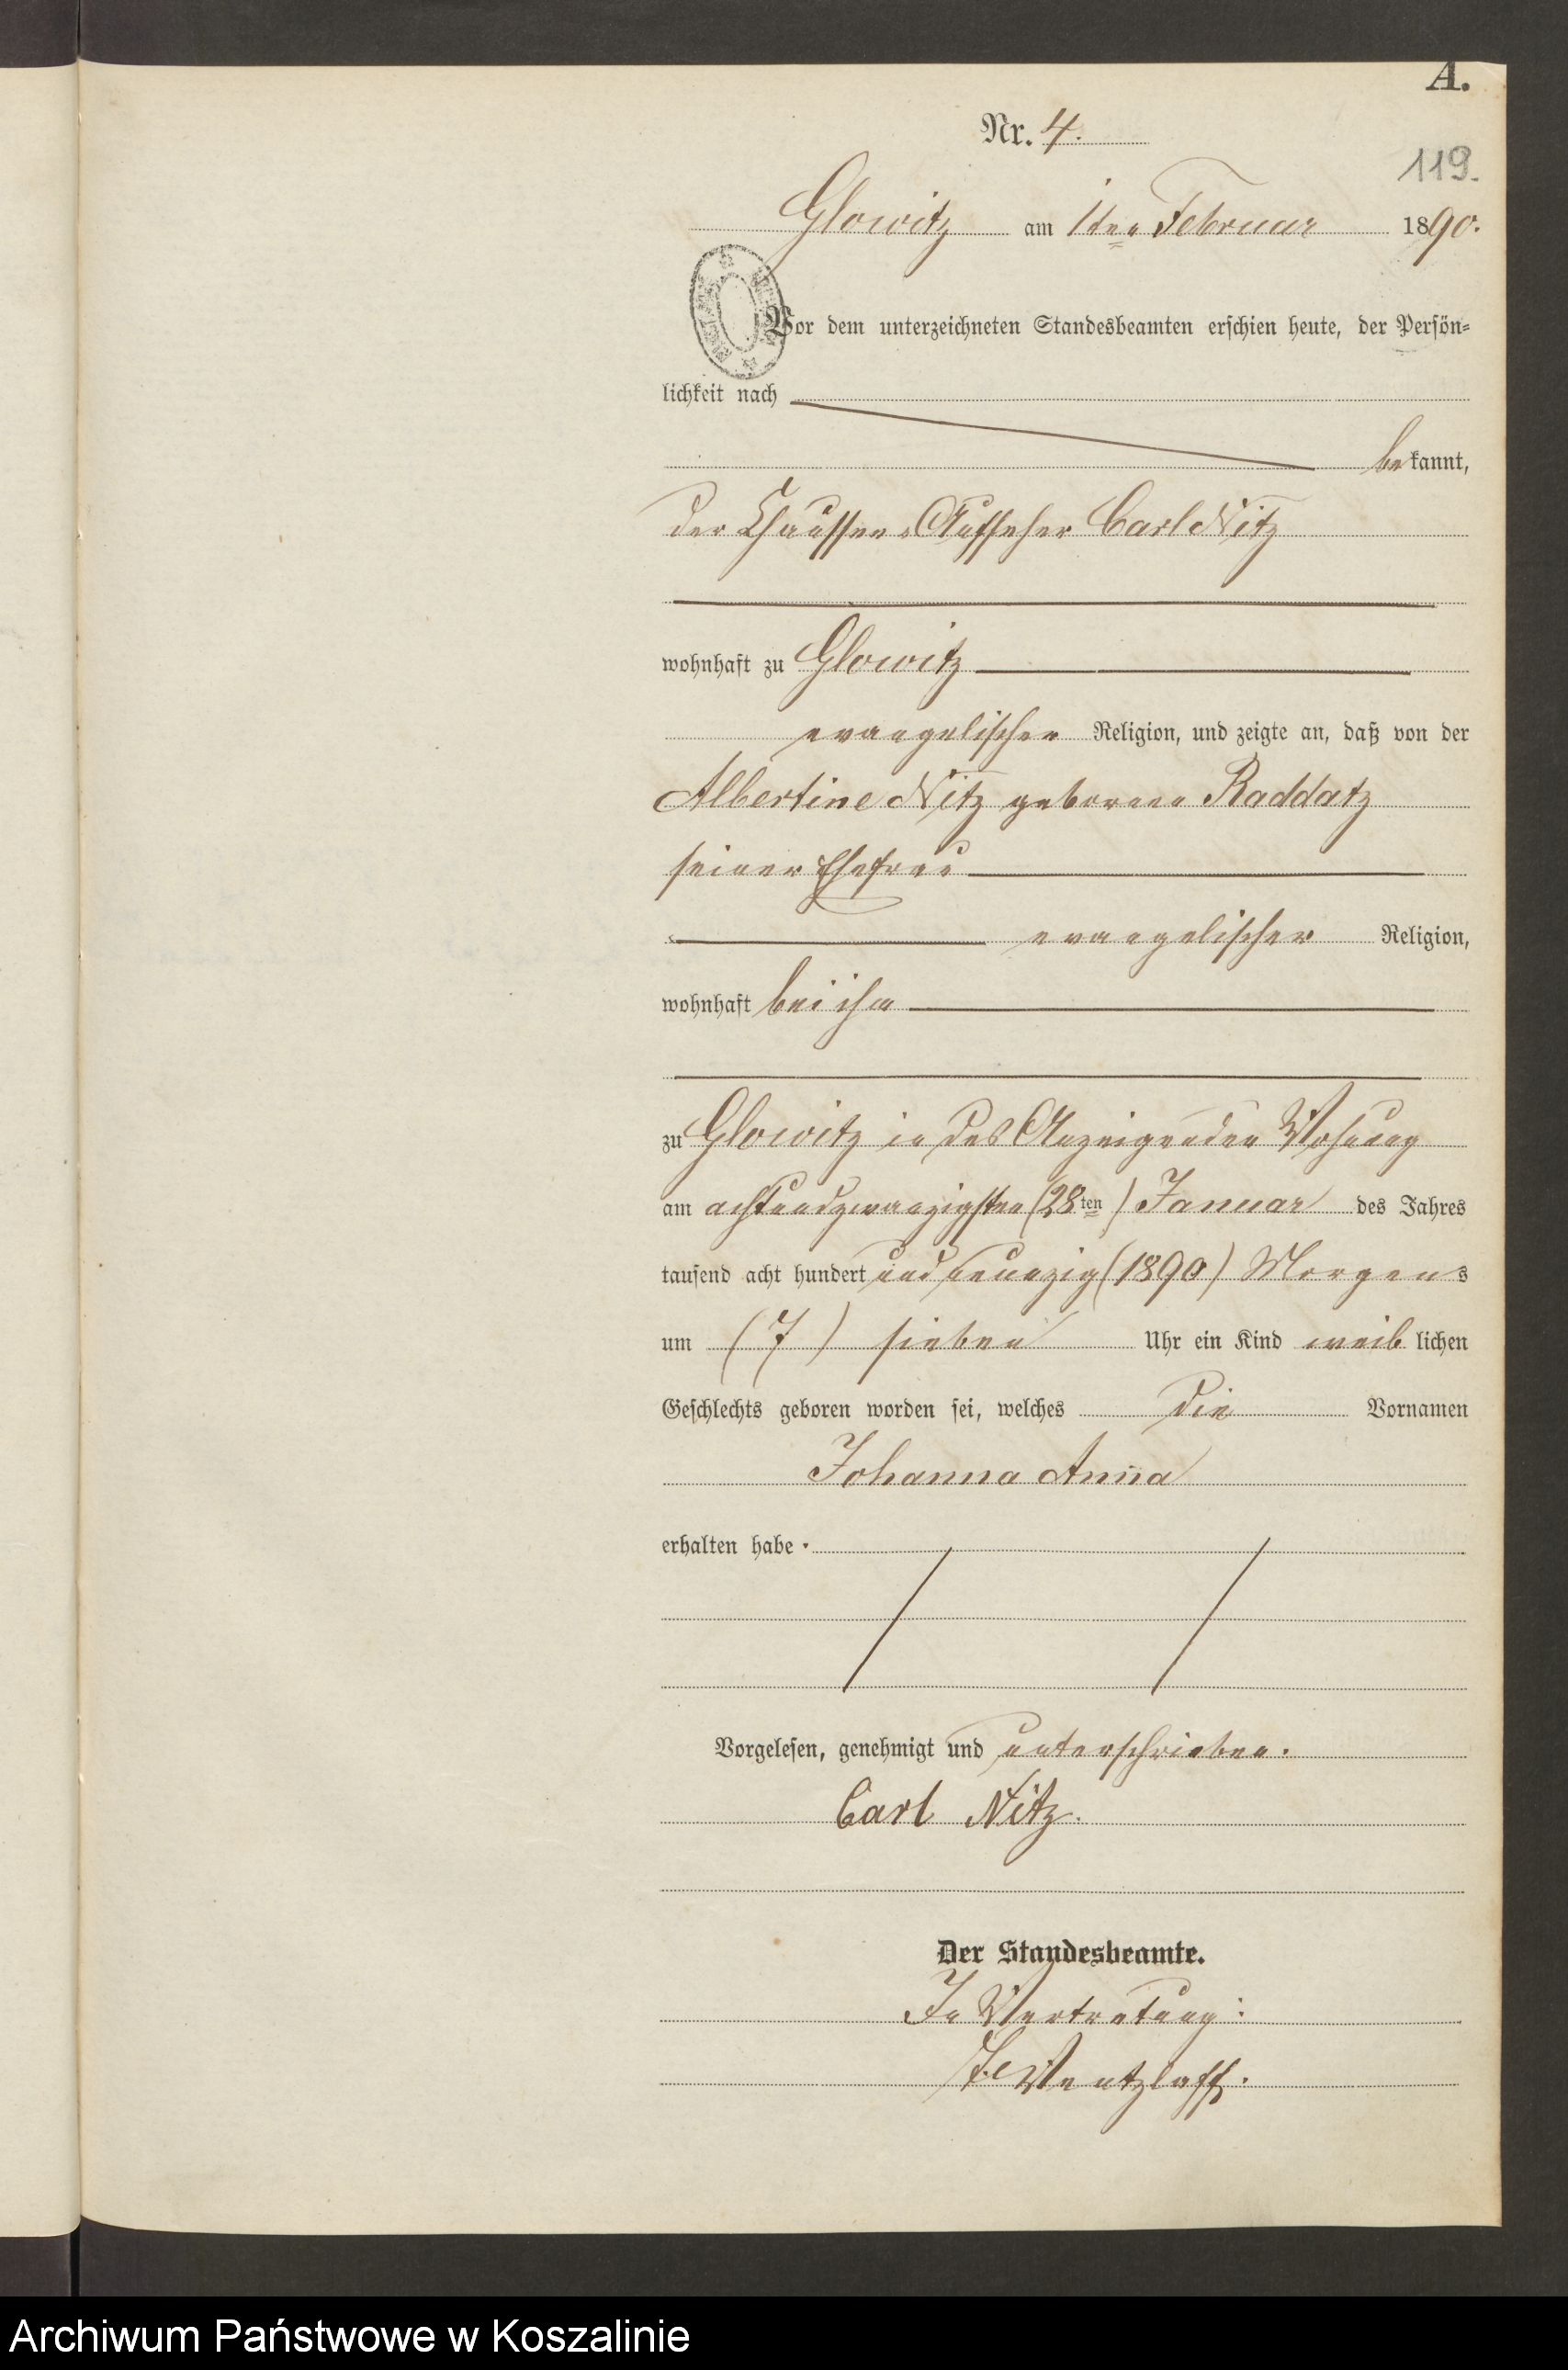 A.
Nr. 4.
119.
Glowitz am 1ten Februar 1890.
Vor dem unterzeichneten Standesbeamten erschien heute, der Persön-
lichkeit nach
bekannt,
der Chaussee-Aufseher Carl Nitz
wohnhaft zu Glowitz
evangelischer Religion, und zeigte an, daß von der
Albertine Nitz geborene Raddatz
seiner Ehefrau
evangelischer Religion,
wohnhaft bei ihm
zu Glowitz in des Anzeigenden Wohnung
am achtundzwanzigsten (28ten) Januar des Jahres
tausend acht hundert und neunzig (1890) Morgens
um (7) sieben Uhr ein Kind weiblichen
Geschlechts geboren worden sei, welches die Vornamen
Johanna Anna
erhalten habe.
Vorgelesen, genehmigt und unterschrieben.
Carl Nitz.
Der Standesbeamte.
In Vertretung:
Wentzlaff.
Archiwum Państwowe w Koszalinie